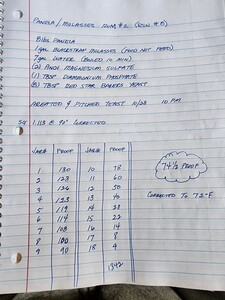 PANELA / MOLASSES RUM #2 (RUN #5)
8 lbs PANELA
1 gal BLACKSTRAP MOLASSES (FOOD NOT FEED)
7 gal WATER (BOILED 10 MIN)
(2) PINCH MAGNESIUM SULFATE
(1) TBSP DIAMMONIUM PHOSPHATE
(8) TBSP RED STAR BAKERS YEAST
AREATED & PITCHED YEAST 10/28 10 PM
SG 1.113 @ 90° CORRECTED
JAR# PROOF JAR# PROOF
1 130 10 78
2 128 11 60
3 126 12 50
4 123 13 40
5 119 14 28
6 114 15 22
7 108 16 14
8 100 17 8
9 90 18 4
1342
74 1/2 PROOF
CORRECTED TO 72°F